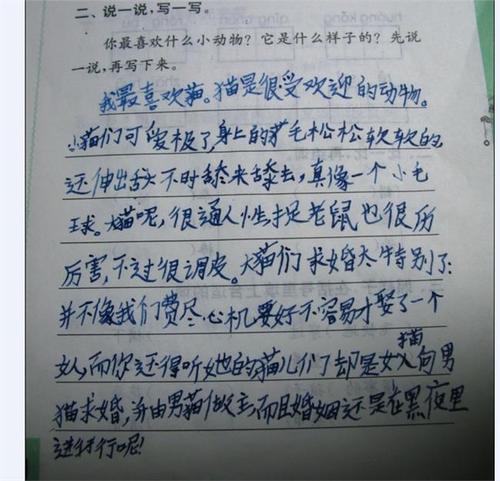 二、说一说,写一写。
你最喜欢什么小动物?它是什么样子的?先说
一说,再写下来。
我最喜欢猫。猫是很受欢迎的动物。
小猫们可爱极了,身上的毛松松软软的,
还伸出舌头不时舔来舔去,真像一个小毛
球。大猫呢,很通人性捉老鼠也很厉
厉害,不过很调皮。大猫们求婚太特别了:
并不像我们费尽心机要好不容易才娶了一个
女人,而你还得听她的猫儿们却是女猫向男
猫求婚,并由男猫做主,而且婚姻还是在黑夜里
进行呢!